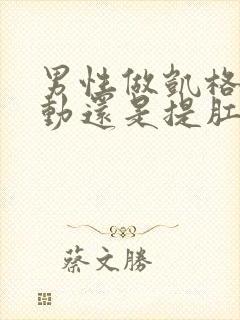 男性做凱格
動還是提肛
蔡文勝